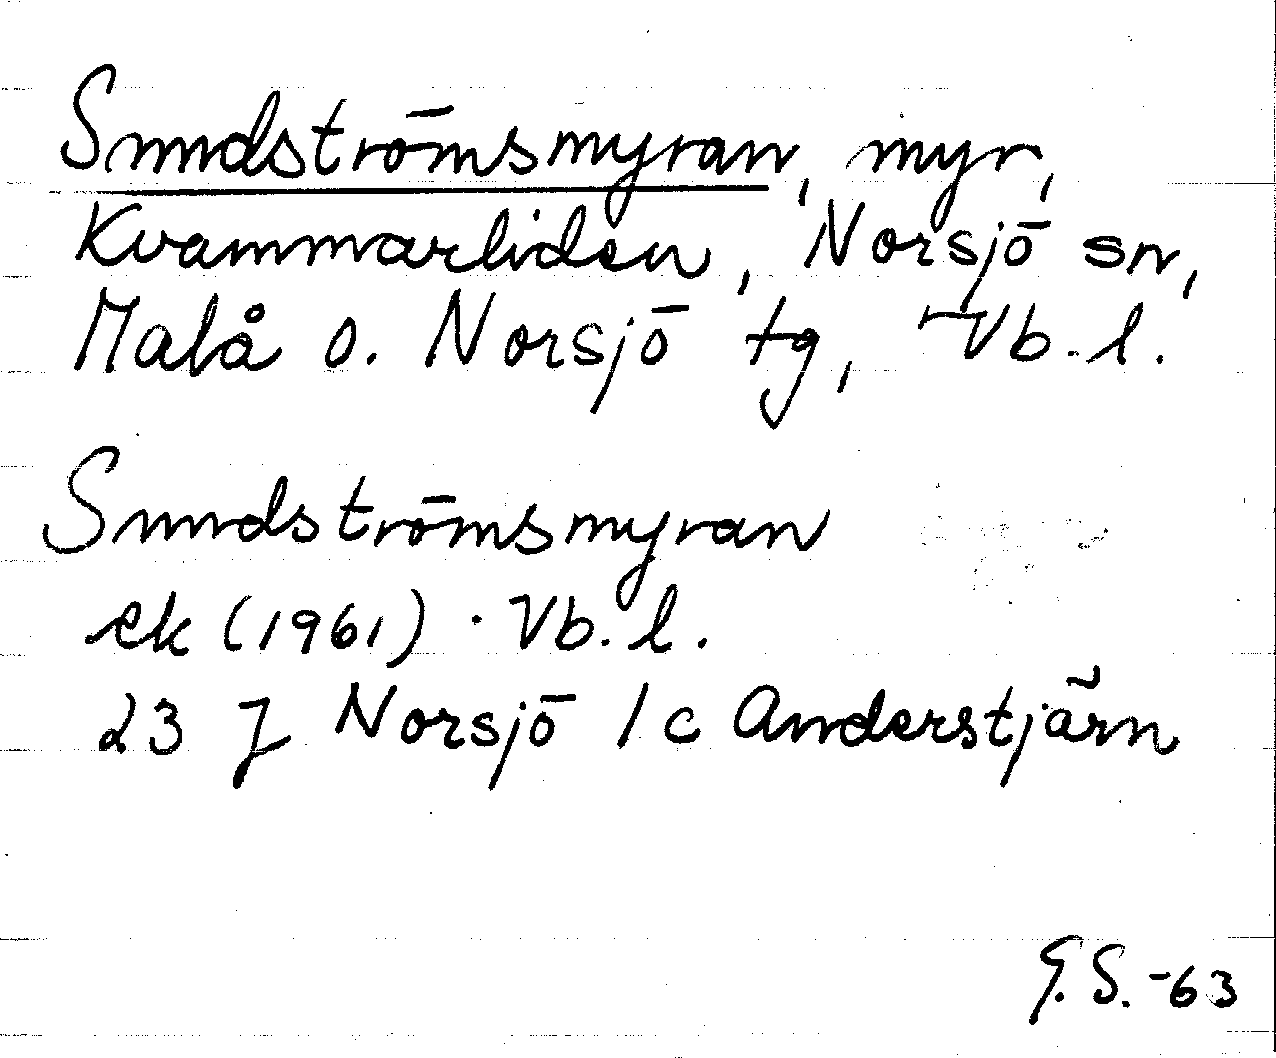 Sundströmsmyran, myr,
Kvammarliden, Norsjö sn,
Malå o. Norsjö tg, Vb. l.
Sundströmsmyran
ek (1961) . Vb. l.
23 J Norsjö 1 c Anderstjärn
G. S. -63